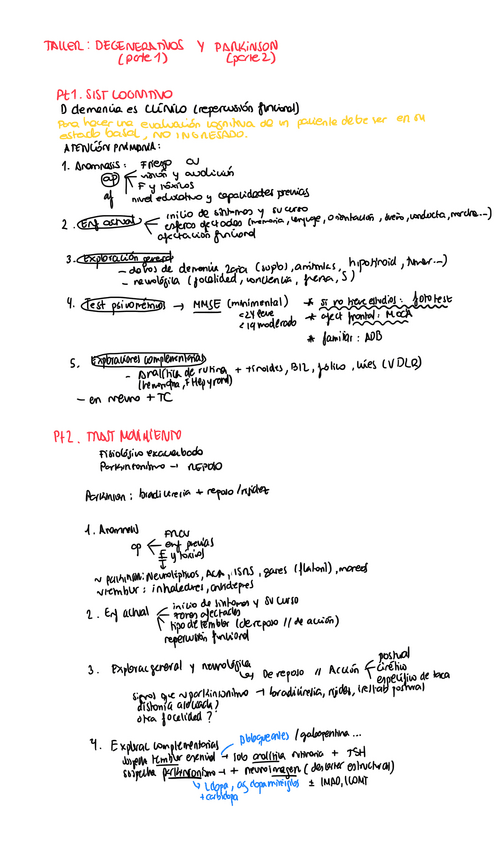 TALLER: DEGENERATIVOS Y PARKINSON
(parte 1) (parte 2)
Pt1. SIST COGNITIVO
D demencia es CLÍNICO (repercusión funcional)
Para hacer una evaluación cognitiva de un paciente debe ver en su
estado basal, NO INGRESADO.
ATENCIÓN PRIMARIA:
1. Anamnesis: F riesgo CV
ap visión y audición
F y tóxicos
af nivel educativo y capacidades previas
2. Enf actual inicio de síntomas y su curso
esferas afectadas (memoria, lenguaje, orientación, sueño, conducta, marcha...)
afectación funcional
3. Exploración general
- datos de demencia 2aria (soplos, arritmias, hipotiroid, tumor...)
- neurológica (focalidad, fuerza, S)
4. Test psicométricos → MMSE (minimental) * si no tiene estudios: fototest
<24 leve * afect frontal: MoCA
<19 moderado
* familiar:
5. Exploraciones complementarias
- Analítica de rutina + tiroides, B12, fólico, lúes (VDLR)
(hemograma, F Hep y renal)
- en neuro + TC
Pt2. TRAST MOVIMIENTO
Fisiológico exacerbado
Parkinsonismo → REPOSO
Parkinson: bradicinesia + reposo/rigidez
1. Anamnesis FRCV
ap enf previas
F y tóxicos
~ parkinson: Neurolépticos, ACA, ISRS, gases (flatoril), mareos
temblor: inhaladores, antidepres
2. Enf actual inicio de síntomas y su curso
zonas afectadas
tipo de temblor (de reposo // de acción)
repercusión funcional
3. Explorac general y neurológica
De reposo // Acción postural
cinético
específico de tarea
signos que parkinsonismo → bradicinesia, rigidez, inestab postural
distonía asociada?
otra focalidad?
4. Explorac complementarias Bbloqueantes / gabapentina...
sospecha temblor esencial → solo analítica rutinaria + TSH
sospecha parkinsonismo → + neuroimagen (descartar estructural)
Ldopa, ag dopaminérgicos ± IMAO, ICOMT
+ carbidopa